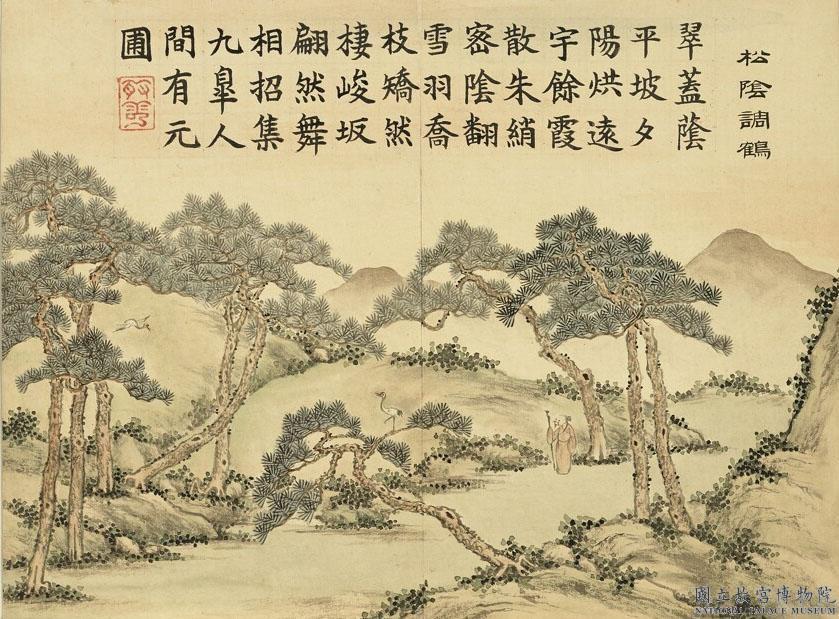 松陰調鶴
翠蓋蔭
平坡夕
陽烘遠
宇餘霞
散朱綃
密陰翻
雪羽喬
枝矯然
棲峻坂
翩然舞
相招集
九皐人
間有元
圃
國立故宮博物院
NATIONAL PALACE MUSEUM